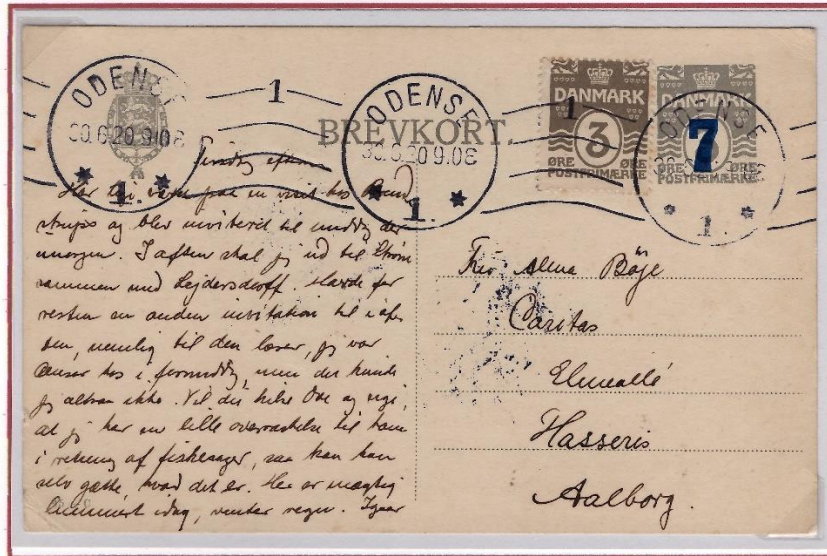 ODENSE
30.6.20 9.0E
1.
1
ODENSE
30.6.20 9.0E
1.
1
DANMARK
3
ØRE ØRE
POSTFRIMÆRKE
DANMARK
7
ØRE ØRE
POSTFRIMÆRKE
ODENSE
1.
BREVKORT.
Har i paa en visit hos
og blev inviteret til middag der
imorgen. Iaften skal jeg ud til
sammen med Lejdersdorff, havde for
resten en anden invitation til iaf-
ten, nemlig til den læser, jeg var
hos i formiddag, men det kunde
jeg altsaa ikke. Vil du hilse Ove og sige,
at jeg har en lille overraskelse til ham
i retning af fiskesager, saa kan han
selv gætte, hvad det er. Her er mægtig
idag, venter regn. Igaar
Frk Alma Böje
Caritas
Elmeallé
Hasseris
Aalborg.